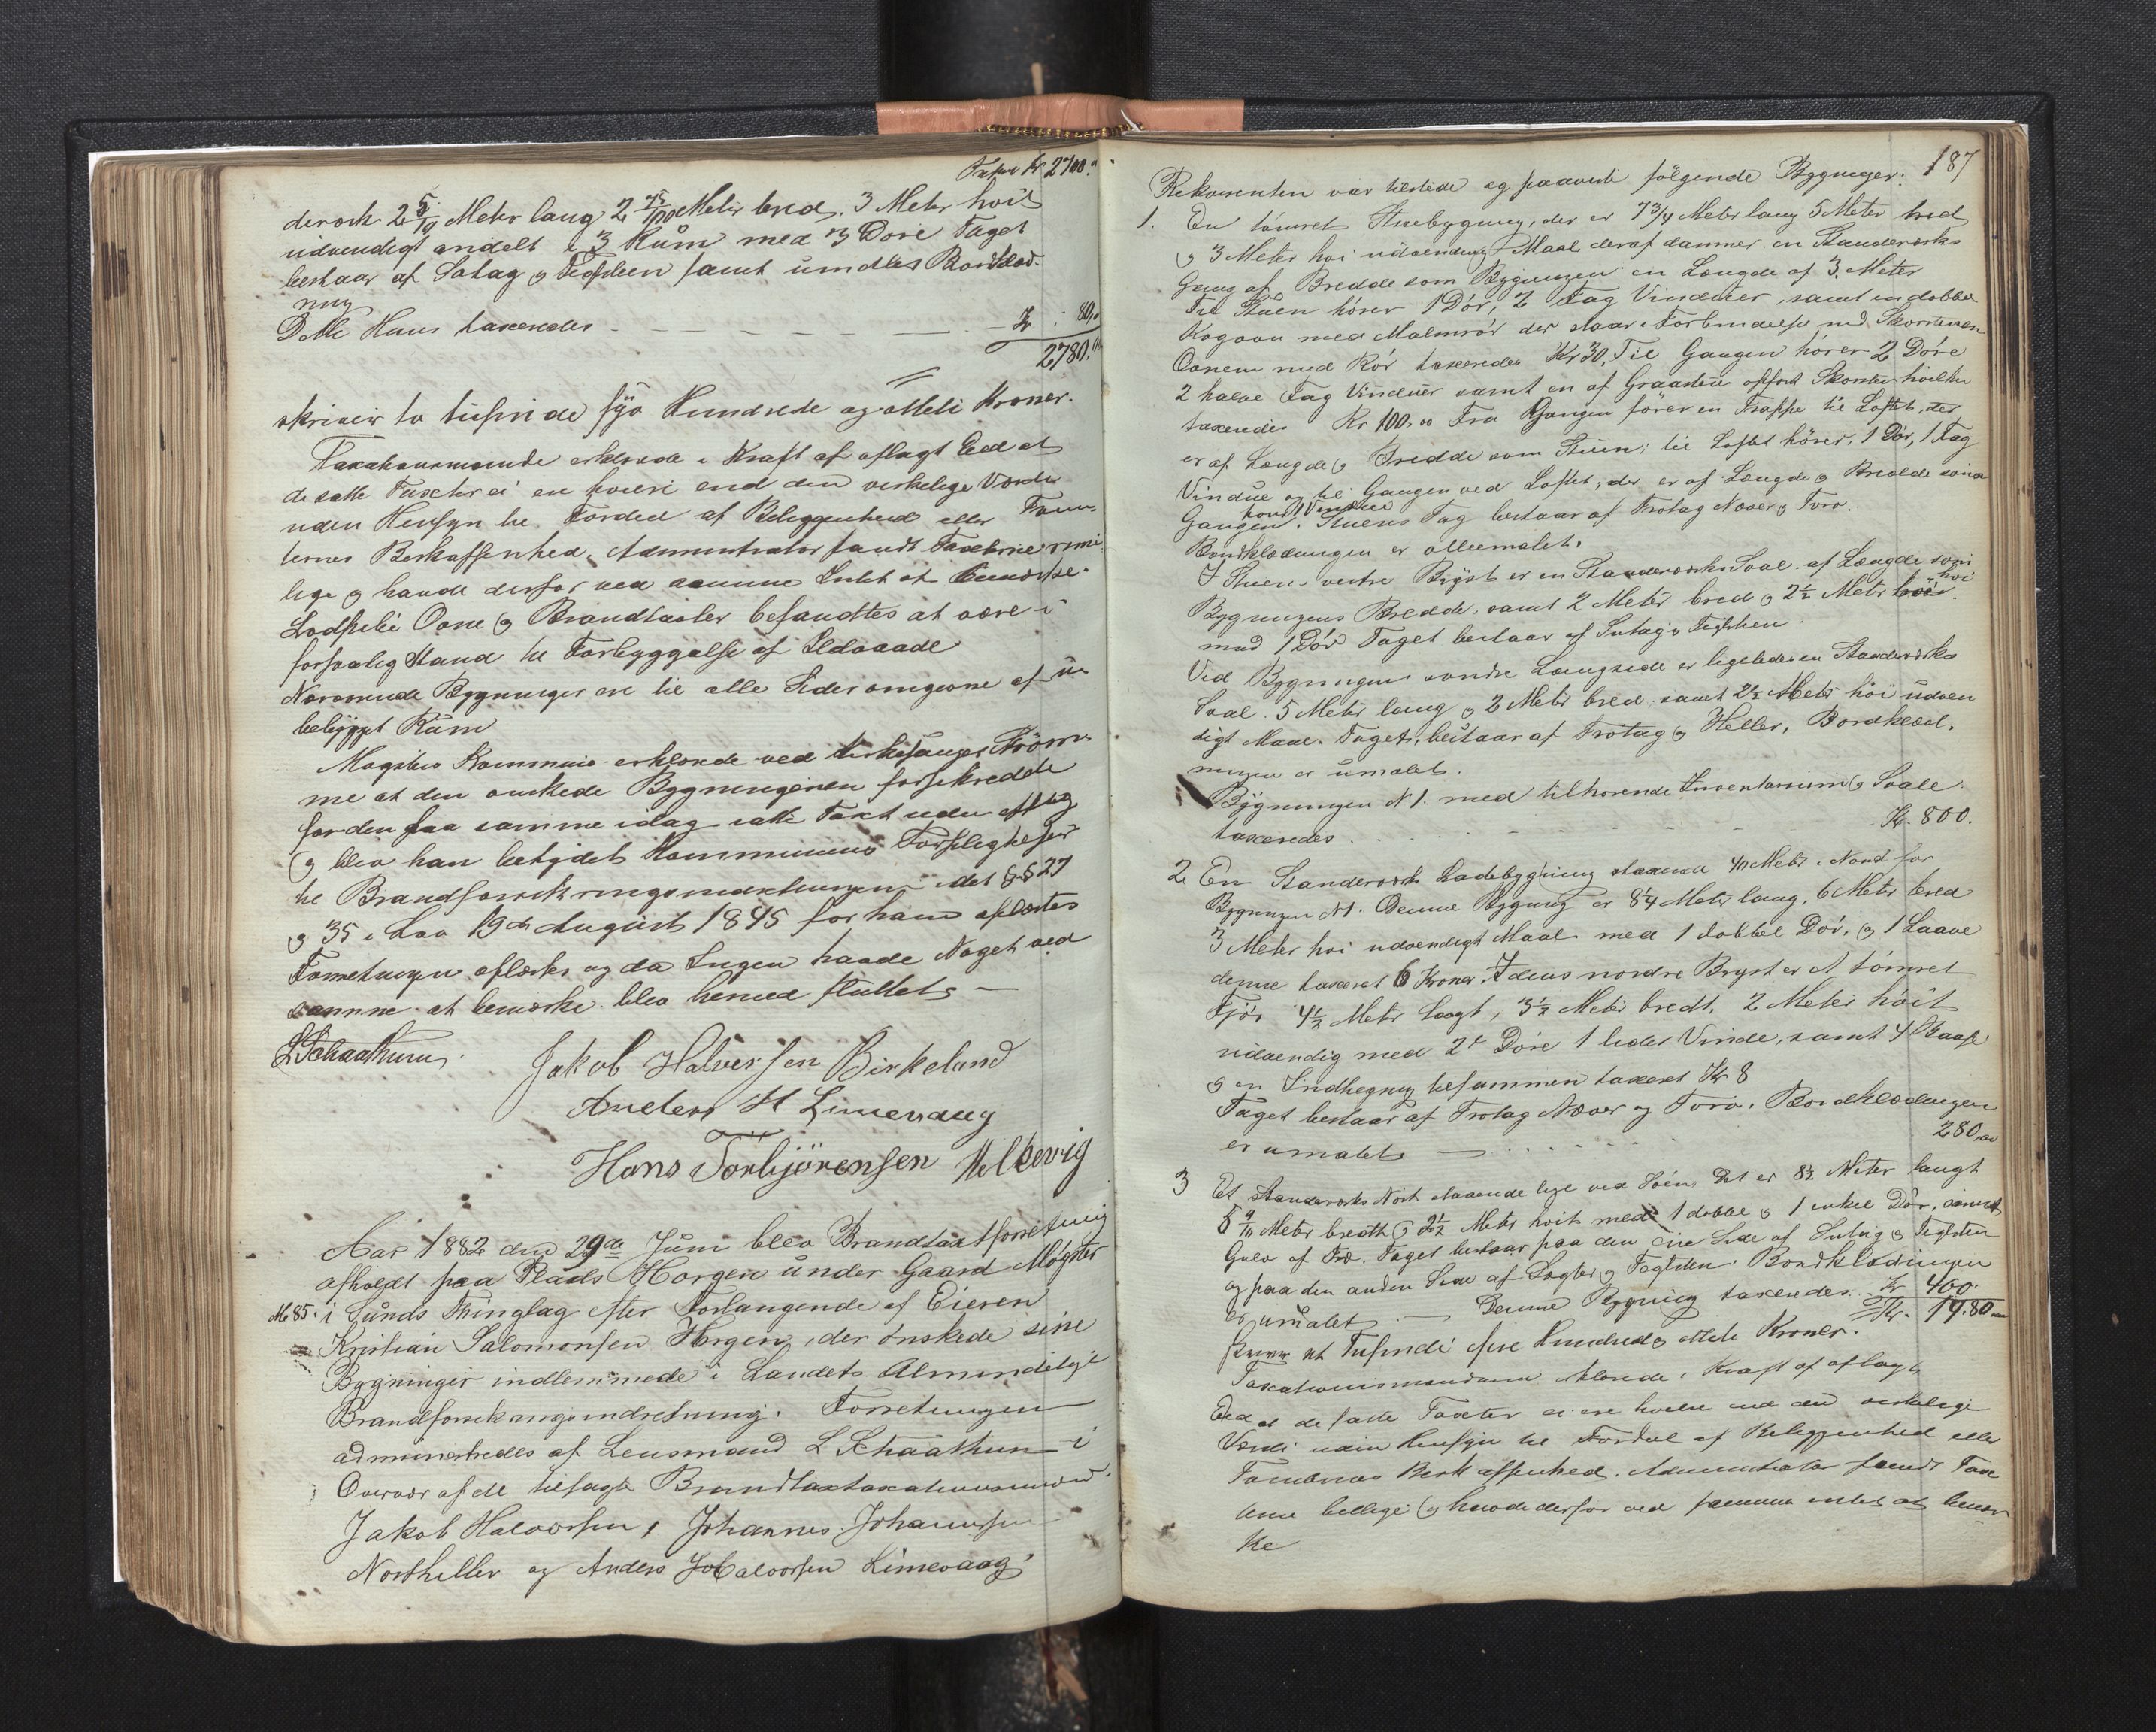 Taxer Kr 2700.
derværk 2 5/10 Meter lang 2 75/100 Meter bred. 3 Meter hoit
udvendigt andelt i 3 Rum med 3 Dore Taget
bestaar af Sutag og Teglsteen samt umalet Bordklæd-
ning
Dette Huus taxeredes - - - - - Kr 80,00
2780.00
skriver to tusinde syv Hundrede og otteti Kroner.
Taxationsmændene erklærede i Kraft af aflagt Eed at
de satte Taxter ei ere hoiere end den virkelige Værdi
uden Hensyn til Fordel af Beliggenhed eller Tom-
ternes Beskaffenhed. Administrator fandt Taxterne rime
lige og havde derfor ved samme Intet at bemærke.
Lodpibe Ovne og Brandtavler befandtes at være i
forsvarlig Stand til Forebyggelse af Ildvaade
Nærværende Bygninger ere til alle Sider omgivne af u-
bebygget Rum
Møgster Kommune erklærede ved Kirkesanger Strøm-
me at den ønskede Bygningerne forsikrede
for den paa samme idag satte Taxt uden aftag
og blev han betydet Kommunens Forpligtelser
til Brandforsikringsindretningen idet § § 27
og 35 i Lov 19de August 1845 for ham oplæstes
Forretningen oplæstes og da Ingen havde Noget ved
samme at bemærke blev hermed sluttet -
L Schaathun.
Jakob Halversen Birkeland
Anders H Limevaag
Hans Torbjörensen Melkevig
Aar 1882 den 29de Juni blev Brandtaxtforretning
afholdt paa Plads Horgen under Gaard Møgster
No 85. i Sunds Thinglag efter Forlangende af Eieren
Kristian Salomonsen Horgen, der ønskede sine
Bygninger indlemmede i Landets Almindelige
Brandforsikringsindretning. Forretningen
administredes af Lensmand L Schaathun i
Overvær af de tilsagte Brandtaxtaxationsmænd.
Jakob Halvorsen, Johannes Johannessen
Northeller og Anders Halvorsen Limevaag.
187
Rekvirenten var tilstede og paaviste følgende Bygninger:
1. En tømret Stuebygning, der er 7 3/4 Meter lang 5 Meter bred
og 3 Meter høi udvendig Maal deraf danner en Standerværks
Gang af Bredde som Bygningen en Længde af 3. Meter
Til Stuen hører 1 Dør, 2 Fag Vinduer, samt en dobbel
Kogovn med Malmrør der staar i Forbindelse med Skorstenen
Ovnen med Rør taxeredes Kr 30, Til Gangen hører 2 Døre
2 halve Fag Vinduer samt en af Graasten opført Skorsten hvilken
taxeredes Kr 100.00 Fra Gangen fører en Trappe til Loftet, der
er af Længde og Bredde som Stuen; til Loftet hører, 1 Dør, 1 Fag
Vindue og til Gangen ved Loftet, der er af Længde og Bredde som
hører 1 Vindue
Gangen. Stuens Tag bestaar af Trotag Næver og Torv.
Bordklædningen er oliemalet.
I Stuens vestre Bryst er en Standerværks Sval. af Længde som
Bygningens Bredde, samt 2 Meter bred og 2 1/2 Meter høi
med 1 Dør Taget bestaar af Sutag og Teglsten.
Ved Bygningens søndre Langside er ligeledes en Standerværks
Sval. 5 Meter lang og 2 Meter bred, samt 2 1/2 Meter høi udven
digt Maal. Taget, bestaar af Trotag og Heller, Bordklæd.
ningen er umalet.
Bygningen N 1. med tilhørende Inventarium og Svale
taxeredes . . . . . Kr. 800.
2 En Standerværks Ladebygning staaende 40 Meter i Nord for
Bygningen N 1. Denne Bygning er 8 1/4 Meter lang, 6 Meter bred
3 Meter høi udvendigt Maal med 1 dobbel Dør, og 1 Laave
denne taxeret 6 Kroner. I dens nordre Bryst er et tømret
Fjøs 4 1/2 Meter langt, 3 1/2 Meter bredt, 2 Meter høit
udvendig med 2 Døre 1 lidet Vindue, samt 4 Baase
og en Indhegning tilsammen taxeret Kr 8
Taget bestaar af Trotag Næver og Torv. Bordklædningen
er umalet - . . . . . 280,00
3 Et Standerværks Nøst staaende lige ved Søen Det er 8 1/2 Meter langt
5 9/10 Meter bredt og 2 1/2 Meter høit med 1 dobbel og 1 enkel Dør, samt
Gulv af Træ. Taget bestaar paa den ene Side af Sutag og Teglsten
og paa den anden Side af Lægter og Teglsten. Bordklædningen
er umalet - Denne Bygning taxeredes. Kr 400.
Kr. 14.80
skriver et Tusinde fire Hundrede og ottete Kroner.
Taxationsmændene erklærede i Kraft af aflagt
Eed at de satte Taxter ei ere hoiere end den virkelige
Værdi uden Hensyn til Fordel af Beliggenhed eller
Tomternes Beskaffenhed. Administrator fandt Taxt
erne billige og havde derfor ved samme intet at bemær
ke